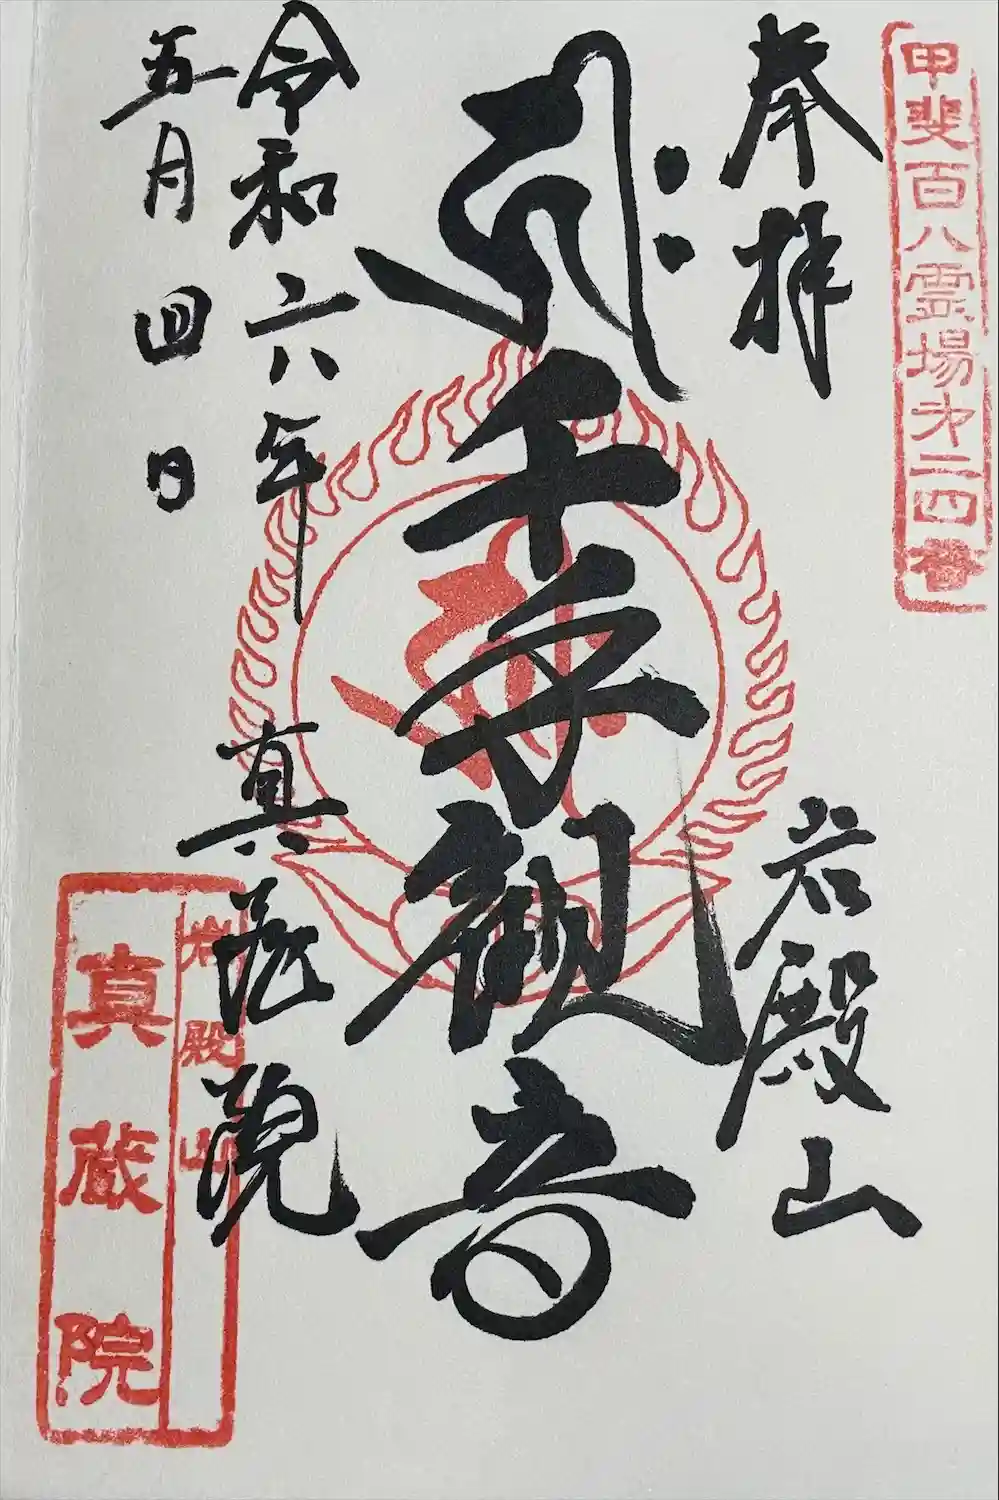 甲斐百八霊場第二四番
奉拝
岩殿山
𑖮𑖿𑖨𑖱𑖾
千手観音
𑖮𑖿𑖨𑖱𑖾
令和六年
五月四日
真蔵院
岩殿山
真蔵院